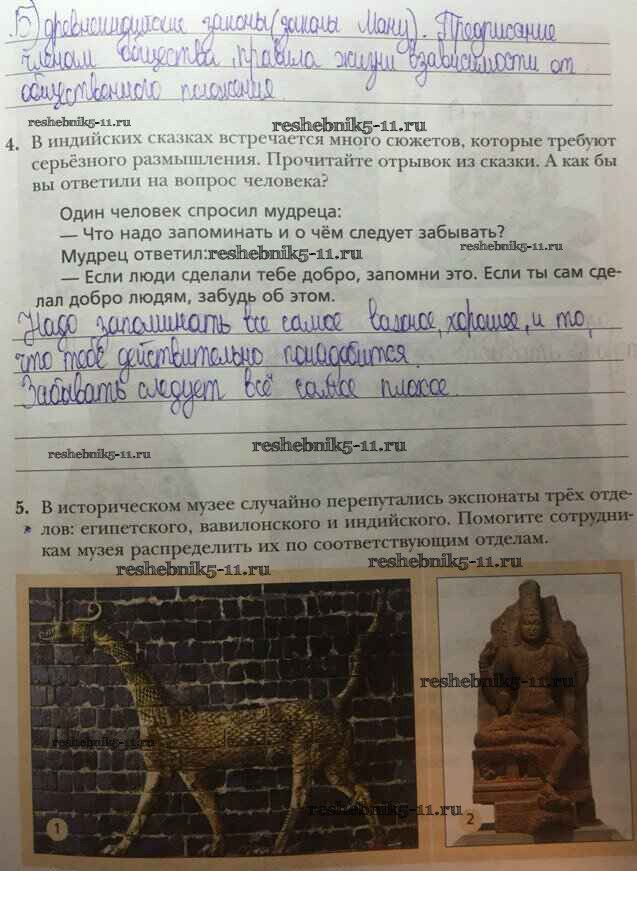 Б) древнеиндийские законы (законы Ману). Предписание
членам общества, правила жизни в зависимости от
общественного положения
reshebnik5-11.ru reshebnik5-11.ru
4. В индийских сказках встречается много сюжетов, которые требуют
серьёзного размышления. Прочитайте отрывок из сказки. А как бы
вы ответили на вопрос человека?
Один человек спросил мудреца:
— Что надо запоминать и о чём следует забывать?
Мудрец ответил: reshebnik5-11.ru reshebnik5-11.ru
— Если люди сделали тебе добро, запомни это. Если ты сам сде-
лал добро людям, забудь об этом.
Надо запоминать все самое важное, хорошее, и то,
что тебе действительно понадобится.
Забывать следует всё самое плохое.
reshebnik5-11.ru reshebnik5-11.ru
5. В историческом музее случайно перепутались экспонаты трёх отде-
* лов: египетского, вавилонского и индийского. Помогите сотрудни-
кам музея распределить их по соответствующим отделам.
reshebnik5-11.ru reshebnik5-11.ru
reshebnik5-11.ru
reshebnik5-11.ru
reshebnik5-11.ru
1 2